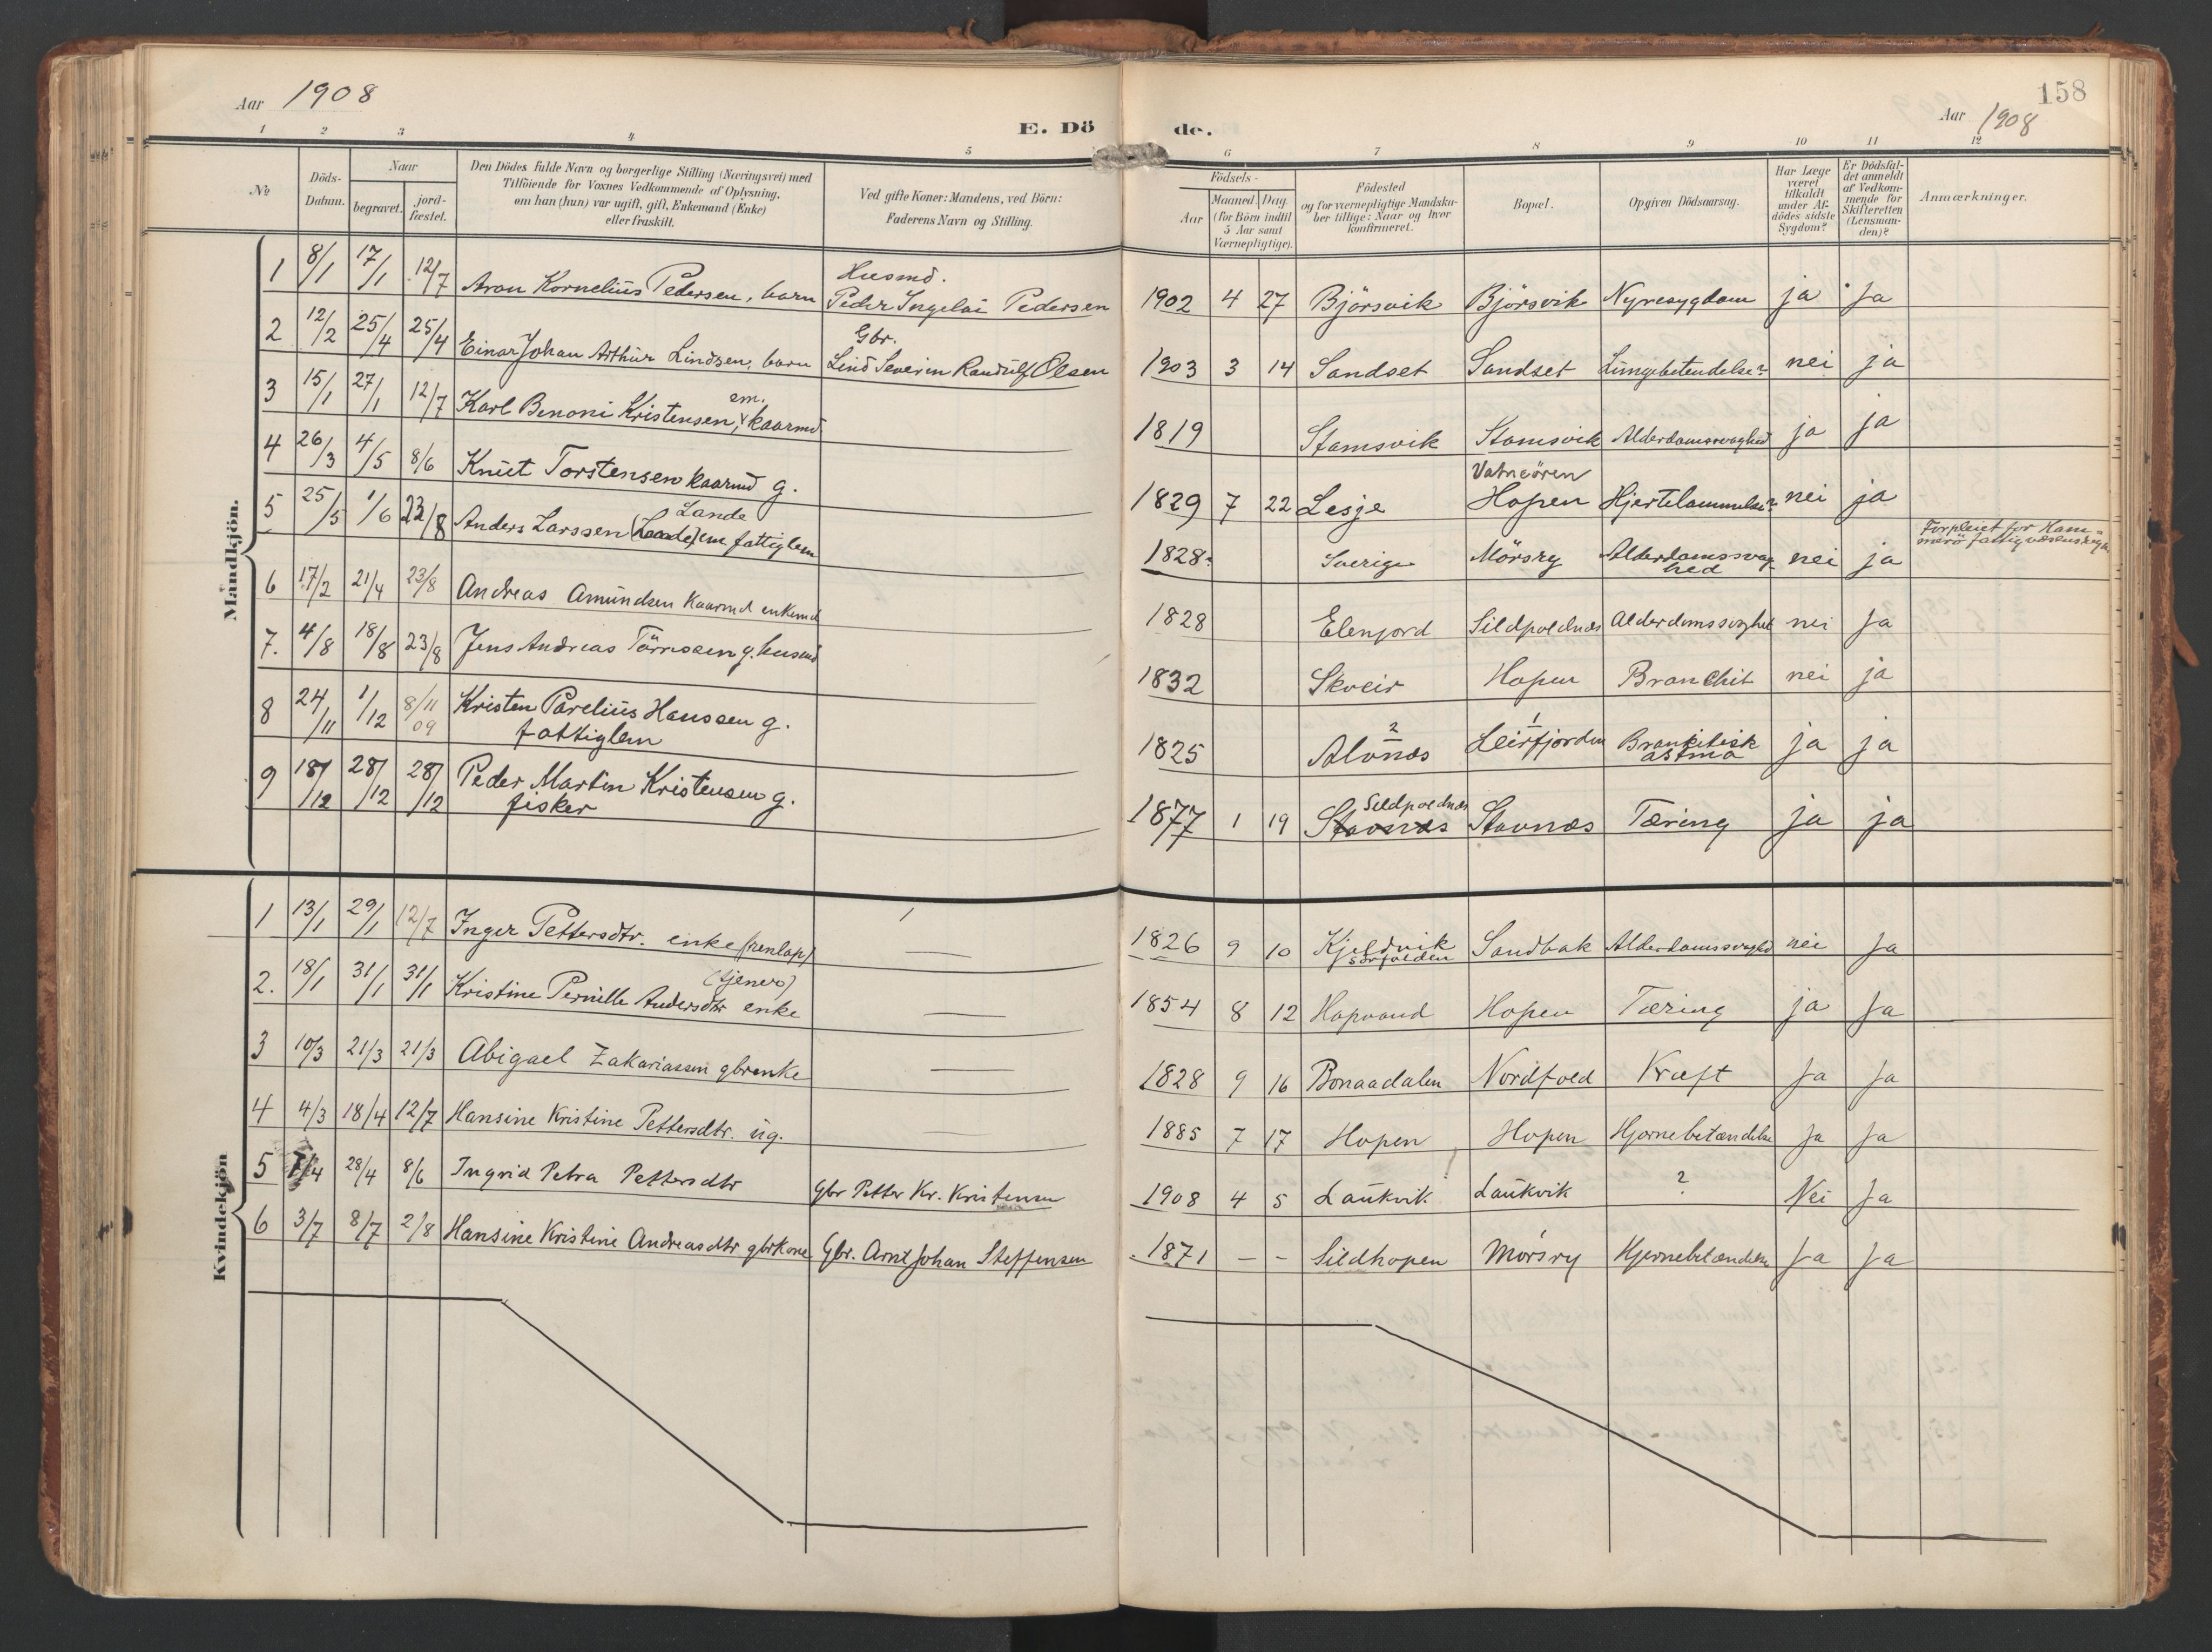 Aar 1908
E. Dö de.
Aar 1908
158
1 2 3 4 5 6 7 8 9 10 11 12
№
Döds-Datum.
Naar
begravet.
jord-fæstet.
Den Dödes fulde Navn og borgerlige Stilling (Næringsvei) med
Tilföiende for Voxnes Vedkommende af Oplysning,
om han (hun) var ugift, gift, Enkemand (Enke)
eller fraskilt.
Ved gifte Koner: Mandens, ved Börn:
Faderens Navn og Stilling.
Födsels-
Aar
Maaned. Dag.
(for Börn indtil
5 Aar samt
Værnepligtige).
Födested
og for værnepligtige Mandska-
ber tillige: Naar og hvor
konfirmeret.
Bopæl.
Opgiven Dödsaarsag.
Har Læge
været
tilkaldt
under Af-
dödes sidste
Sygdom?
Er Dödsfal-
det anmeldt
af Vedkom-
mende for
Skifteretten
(Lensman-
den)?
Anmærkninger.
Mandkjön.
1 8/1 17/1 12/7 Aron Kornelius Pedersen, barn Husmd. Peder Ingelai Pedersen 1902 4 27 Björsvik Björsvik Nyresygdom ja Ja
2 12/2 25/4 25/4 Einar Johan Arthur Lindsen, barn Gbr. Lind Severin Randulf Olsen 1903 3 14 Sandset Sandset Lungebetendelse? nei ja
3 15/1 27/1 12/7 Karl Benoni Kristensen, em. kaarmd 1819 Stamsvik Stamsvik Alderdomssvaghed ja ja
4 26/3 4/5 8/6 Knut Torstensen kaarmd g. 1829 7 22 Lesje Vatnören Hopen Hjertelammelse? nei ja
5 25/5 1/6 23/8 Anders Larssen Lande em fattiglem 1828? Sverige Mörsry Alderdomssvag-
hed nei ja Forpleiet for Ham-
merö fattigvæsens
6 17/2 21/4 23/8 Andreas Amundsen kaarmd enkemd 1828 Elenjord Sildpoldnæs Alderdomssvaghet nei Ja
7. 4/8 18/8 23/8 Jens Andreas Törrissen g. husmd 1832 Skveir Hopen Bronchit nei ja
8 24/11 1/12 8/11 09 Kristen Parelius Hanssen g.
fattiglem 1825 ? Alvnæs Leirfjorden Bronkitisk
astma ja ja
9 18/12 28/12 28/12 Peder Martin Kristensen g.
fisker 1877 1 19 Sildpoldnæs Stavnæs Stavnæs Tæring ja ja
Kvindekjön
1 13/1 29/1 12/7 Inger Pettersdtr. enke (renlap) 1826 9 10 Kjeldvik
Sörfolden Sandbak Alderdomssvaghed nei Ja
2. 18/1 31/1 31/1 Kristine Pernille Andersdtr (tjener) enke 1854 8 12 Hopvand Hopen Tæring ja Ja
3 10/3 21/3 21/3 Abigael Zakariassen gbrenke 1828 9 16 Bonaadalen Nordfold Kræft Ja Ja
4 4/3 18/4 12/7 Hansine Kristine Pettersdtr. ug. 1885 7 17 Hopen Hopen Hjernebetændelse Ja Ja
5 7/4 28/4 8/6 Ingrid Petra Pettersdtr Gbr Petter Kr. Kristensen 1908 4 5 Laukvik Laukvik ? Nei Ja
6 3/7 8/7 2/8 Hansine Kristine Andreasdtr gbrkone Gbr. Arnt Johan Steffensen 1871 – – Sildhopen Mörsry Hjernebetændelse Ja Ja